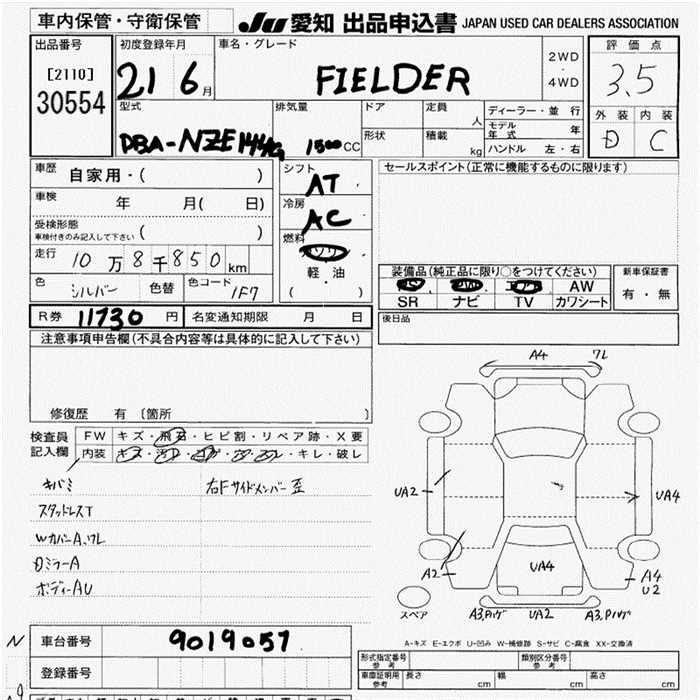 車内保管・守衛保管
JU 愛知 出品申込書 JAPAN USED CAR DEALERS ASSOCIATION
出品番号
[2110]
30554
初度登録年月
21 6 月
車名・グレード
FIELDER
2WD
・
4WD
評価点
3.5
外装 内装
D C
型式
DBA-NZE144G
排気量
1500 CC
ドア
形状
定員
人
積載
kg
ディーラー・並行
モデル年式 年
ハンドル 左・右
車歴
自家用・( )
車検
年 月( 日)
受検形態
車検付きのみ記入して下さい ( )
走行
10 万 8 千 850 km
色
シルバー
色替
色コード
1F7
シフト
AT
冷房
AC
燃料
ガソリン
軽・油
( )
セールスポイント(正常に機能するものに限ります)
装備品(純正品に限り○をつけてください)
PS PW エアB AW
SR ナビ TV カワシート
新車保証書
有・無
後日品
R券 11730 円
名変通知期限 月 日
注意事項申告欄(不具合内容等は具体的に記入して下さい)
修復歴 有 〔箇所 〕
検査員
記入欄
FW キズ・飛石・ヒビ割・リペア跡・X要
内装 キズ・汚れ・コゲ・ ・キレ・破レ
キバミ
スタッドレスT
WカバーA、ワレ
DミラーA
ボディーAU
右Fサイドメンバー歪
A4 ワレ
UA2
UA4
A2
UA4
A4
U2
スペア
A3,ハゲ UA2 A3,
A-キズ E-エクボ U-凹み W-補修跡 S-サビ C-腐食 XX-交換済
N
車台番号
9019057
登録番号
形式指定番号
参考
類別区分番号
参考
車庫証明用
参考
長さ cm
幅 cm
高さ cm